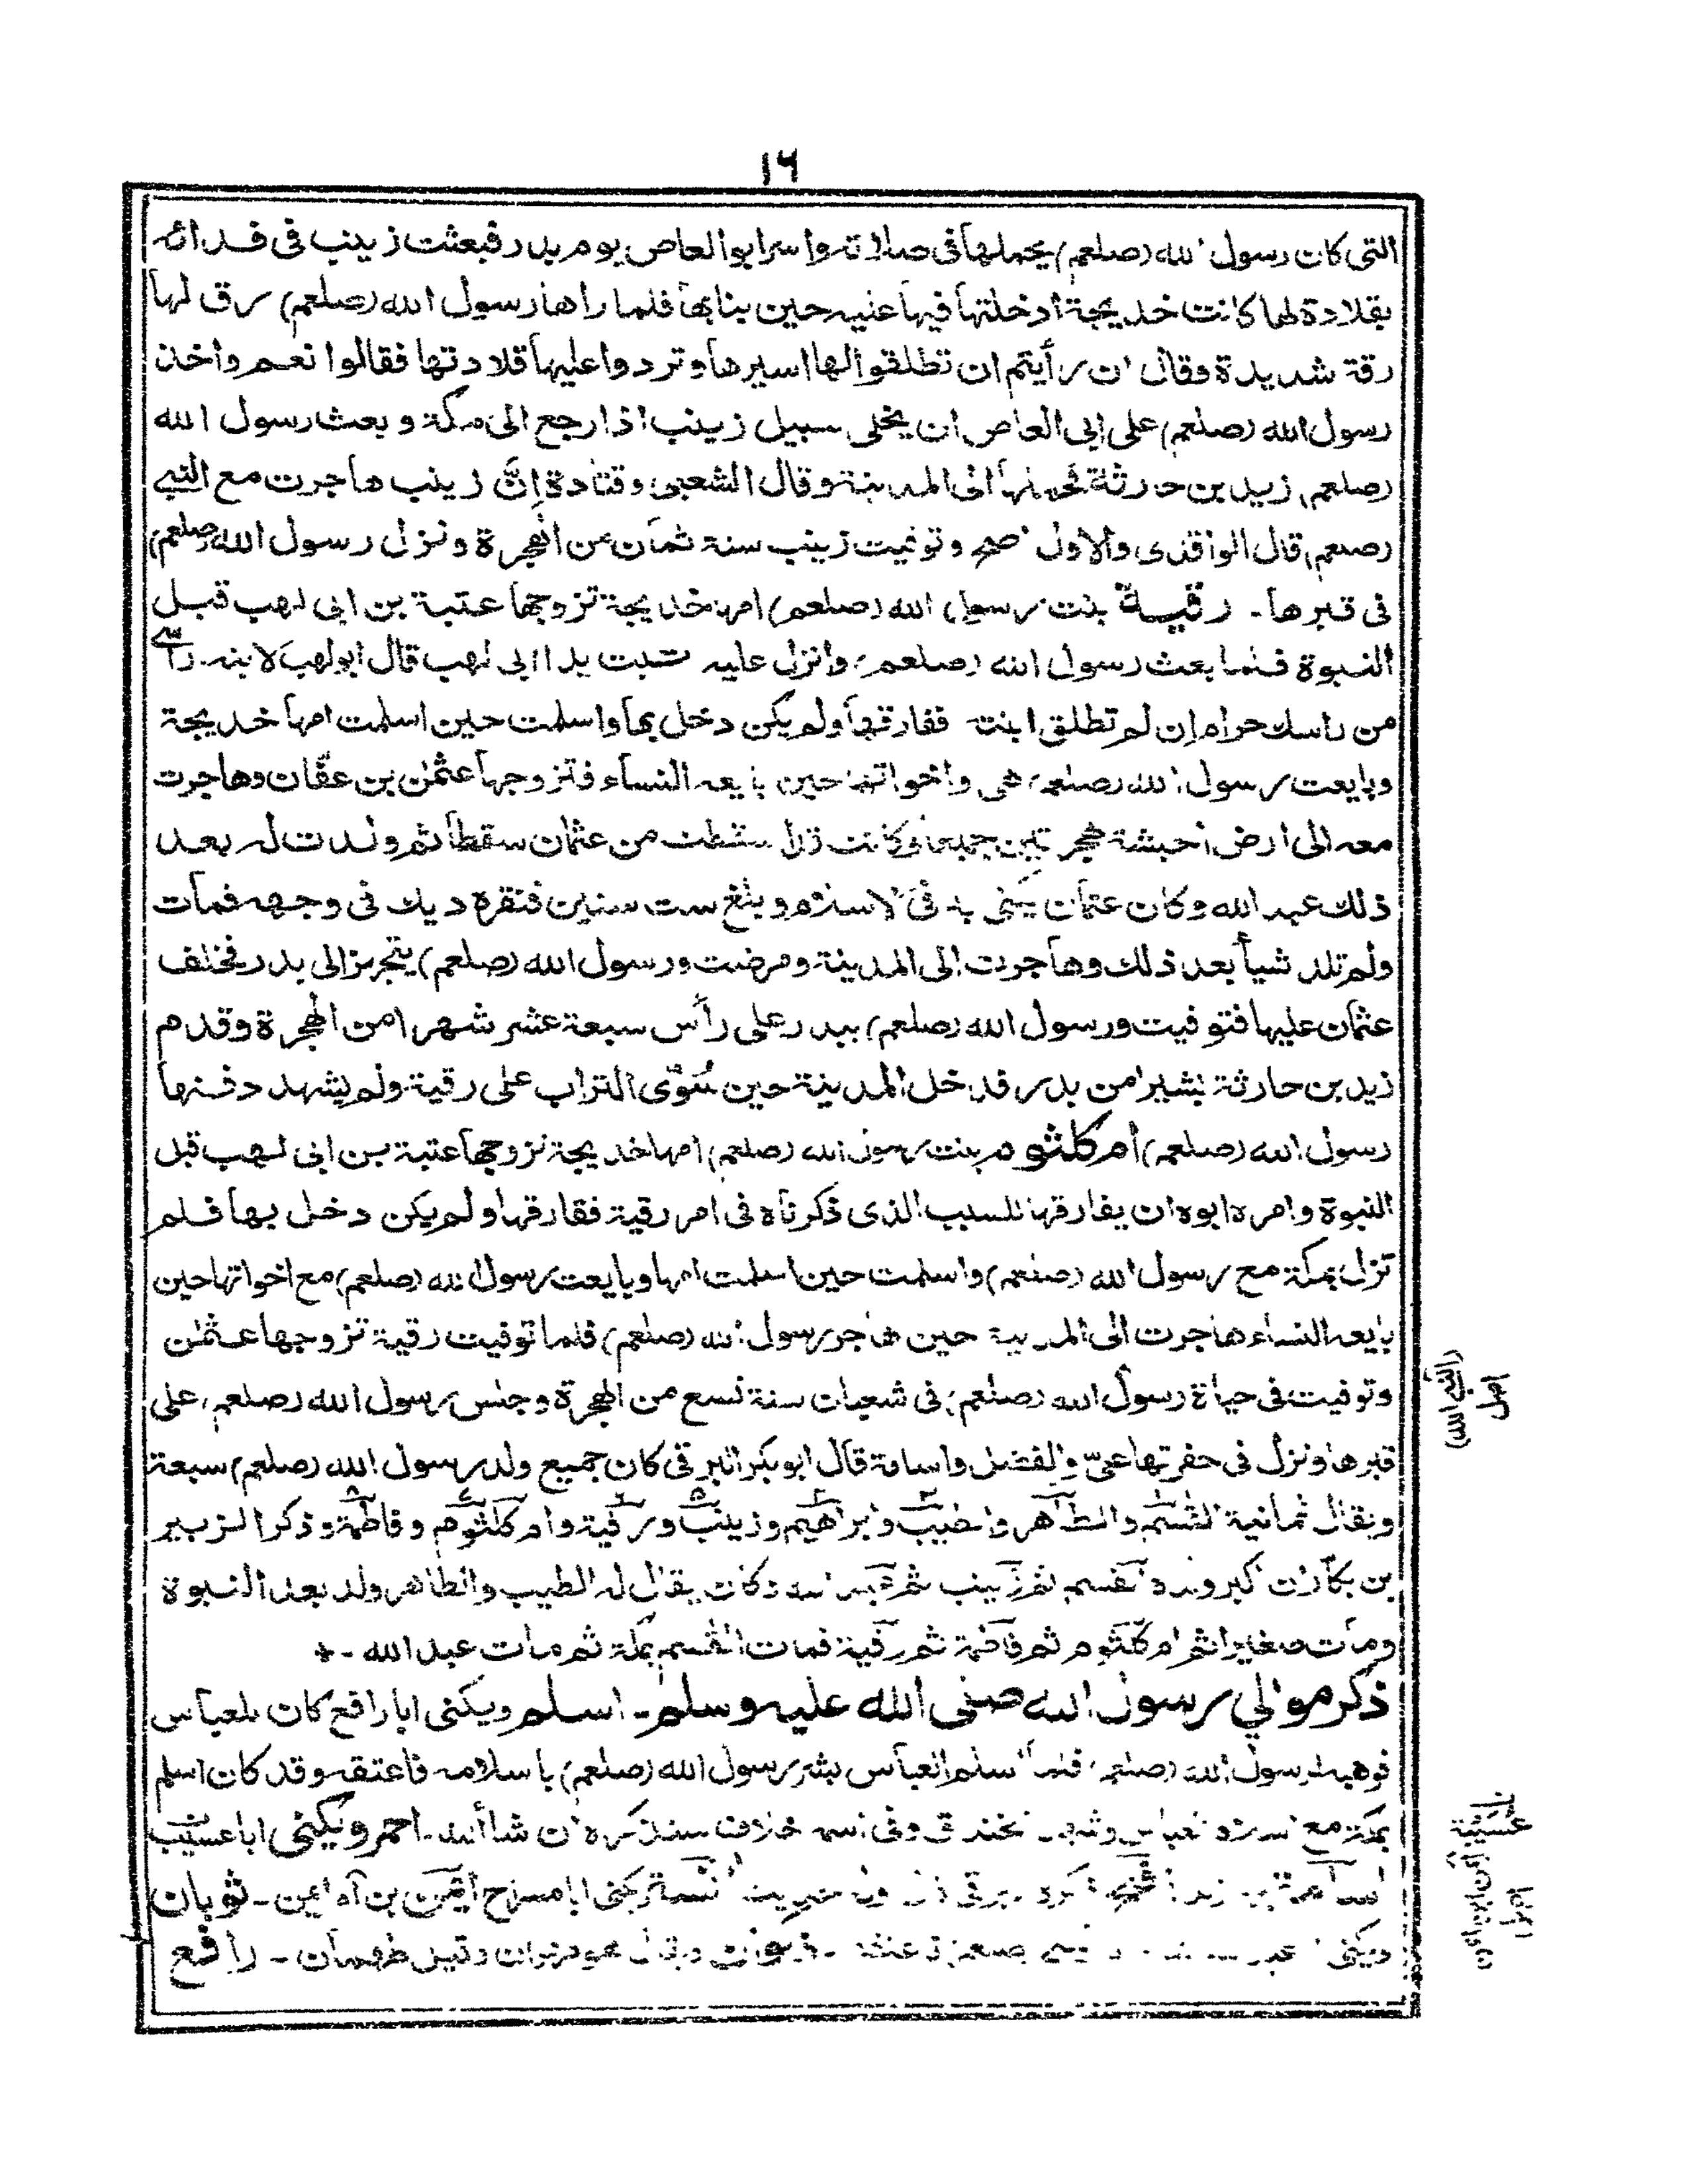 ١٦
التى كان رسول الله (صلعم) يحملها فى صلاته واسر ابو العاص يوم بدر فبعثت زينب فى فدائه
بقلادة لها كانت خديجة ادخلتها فيها عليه حين بنا بها فلما راها رسول الله (صلعم) رق لها
رقة شديدة وقال ان رأيتم ان تطلقوا لها اسيرها وتردوا عليها قلادتها فقالوا نعم واخذ
رسول الله (صلعم) على ابى العاص ان يخلى سبيل زينب اذا رجع الى مكة وبعث رسول الله
(صلعم) زيد بن حارثة فحملها الى المدينة وقال الشعبى وقتادة اِنَّ زينب هاجرت مع النبى
(صلعم) قال الواقدى والاول اصح وتوفيت زينب سنة ثمان من الهجرة ونزل رسول الله (صلعم)
فى قبرها ـ رقية بنت رسول الله (صلعم) امها خديجة تزوجها عتبة بن ابى لهب قبل
النبوة فلما بعث رسول الله (صلعم) وانزل عليه تبت يدا ابى لهب قال ابو لهب لابنه راسى
من راسك حرام ان لم تطلق ابنته ففارقها ولم يكن دخل بها واسلمت حين اسلمت امها خديجة
وبايعت رسول الله (صلعم) هى واخواتها حين بايعه النساء فتزوجها عثمٰن بن عفّان وهاجرت
معه الى ارض الحبشة الهجرتين جميعا وكانت قد اسقطت من عثمان سقطا ثم ولدت له بعد
ذلك عبد الله وكان عثمان يكنى به فى الاسلام وبلغ ست سنين فنقره ديك فى وجهه فمات
ولم تلد شيأ بعد ذلك وهاجرت الى المدينة ومرضت ورسول الله (صلعم) يتجهز الى بدر فخلف
عثمان عليها فتوفيت ورسول الله (صلعم) ببدر على رأس سبعة عشر شهرا من الهجرة وقدم
زيد بن حارثة بشيرا من بدر فدخل المدينة حين سُوّى التراب على رقية ولم يشهد دفنها
رسول الله (صلعم) أم كلثوم بنت رسول الله (صلعم) امها خديجة تزوجها عتبة بن ابى لهب قبل
النبوة وامره ابوه ان يفارقها للسبب الذى ذكرناه فى امر رقية ففارقها ولم يكن دخل بها فلم
تزل بمكة مع رسول الله (صلعم) واسلمت حين اسلمت امها وبايعت رسول الله (صلعم) مع اخواتها حين
بايعه النساء هاجرت الى المدينة حين هاجر رسول الله (صلعم) فلما توفيت رقية تزوجها عثمٰن
وتوفيت فى حياة رسول الله (صلعم) فى شعبان سنة تسع من الهجرة وجلس رسول الله (صلعم) على
قبرها ونزل فى حفرتها علىّ والفضل واسامة قال ابو بكر البرقى كان جميع ولد رسول الله (صلعم) سبعة
ويقال ثمانية القٰسم والطاهر والطيب وابراهيم وزينب ورقية وام كلثوم وفاطمة وذكر الزبير
بن بكار ان اكبر ولده القسم ثم زينب ثم عبد الله وكان يقال له الطيب والطاهر ولد بعد النبوة
ومات صغيرا ثم ام كلثوم ثم فاطمة ثم رقية فمات القٰسم بمكة ثم مات عبد الله ـ
ذكر موالي رسول الله صلى الله عليه وسلم ـ اسلم ويكنى ابا رافع كان للعباس
فوهبه لرسول الله (صلعم) فلما اسلم العباس بشر رسول الله (صلعم) باسلامه فاعتقه وقد كان اسلم
بمكة مع اسلام العباس وشهد الخندق وفى اسمه خلاف سنذكره ان شا الله ـ احمر ويكنى ابا عسيب
اسامة بن زيد ... انسة ويكنى ابا مسرح أيمن بن ام ايمن ـ ثوبان
ويكنى ابا عبد الله ... ذكوان ويقال هو مهران وقيل طهمان ـ رافع
اصل